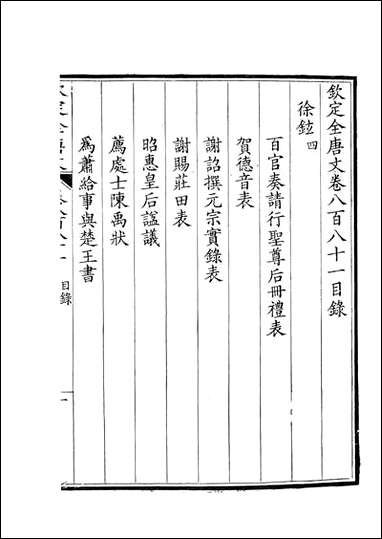 欽定全唐文卷八百八十一目錄
徐鉉 四
百官奏請行聖尊后冊禮表
賀德音表
謝詔撰元宗實錄表
謝賜莊田表
昭惠皇后謚議
薦處士陳禹狀
為蕭給事與楚王書
目錄
一